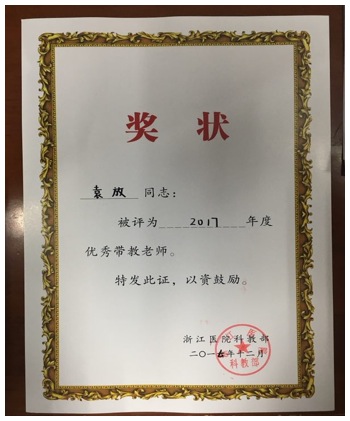 奖状
袁放 同志：
被评为 2017 年度
优秀带教老师。
特发此证，以资鼓励。
浙江医院科教部
二〇一 年十二月
科教部